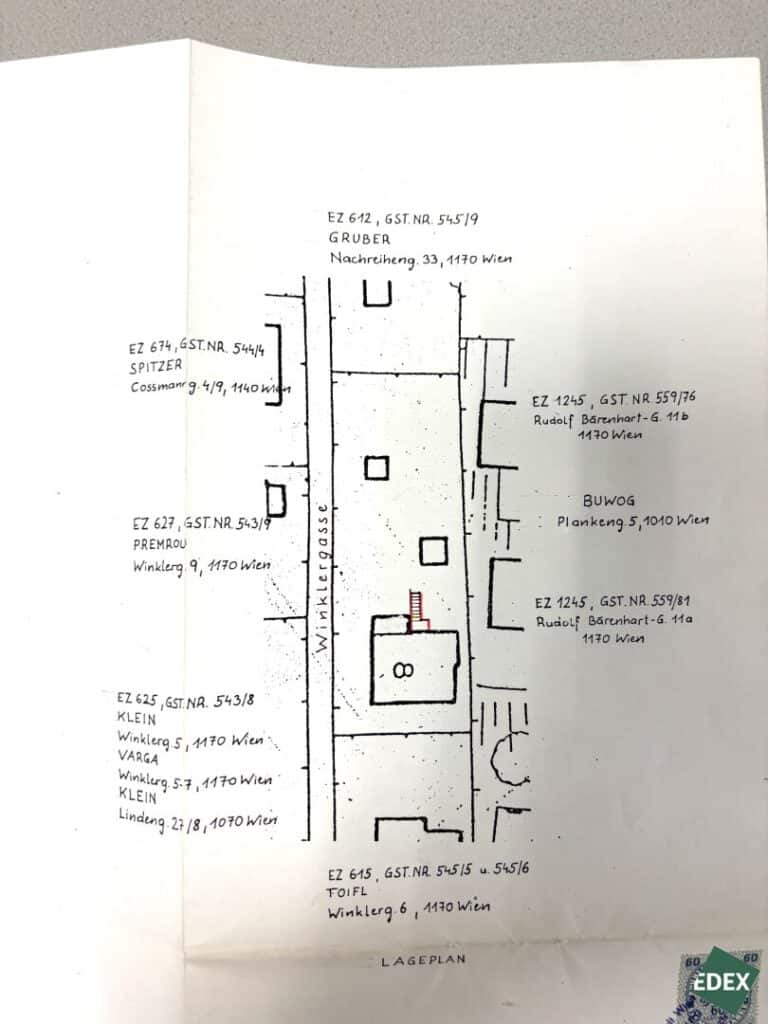 EZ 612, GST.NR. 545/9
GRUBER
Nachreiheng. 33, 1170 Wien
EZ 674, GST.NR. 544/4
SPITZER
Cossmanng. 4/9, 1140 Wien
EZ 1245, GST.NR 559/76
Rudolf Bärenhart-G. 11b
1170 Wien
BUWOG
Plankeng. 5, 1010 Wien
EZ 627, GST.NR. 543/9
PREMROU
Winklerg. 9, 1170 Wien
Winklergasse
EZ 1245, GST.NR. 559/81
Rudolf Bärenhart-G. 11a
1170 Wien
8
EZ 625, GST.NR. 543/8
KLEIN
Winklerg. 5, 1170 Wien
VARGA
Winklerg. 5-7, 1170 Wien
KLEIN
Lindeng. 27/8, 1070 Wien
EZ 615, GST.NR 545/5 u. 545/6
TOIFL
Winklerg. 6, 1170 Wien
LAGEPLAN
60 60
EDEX